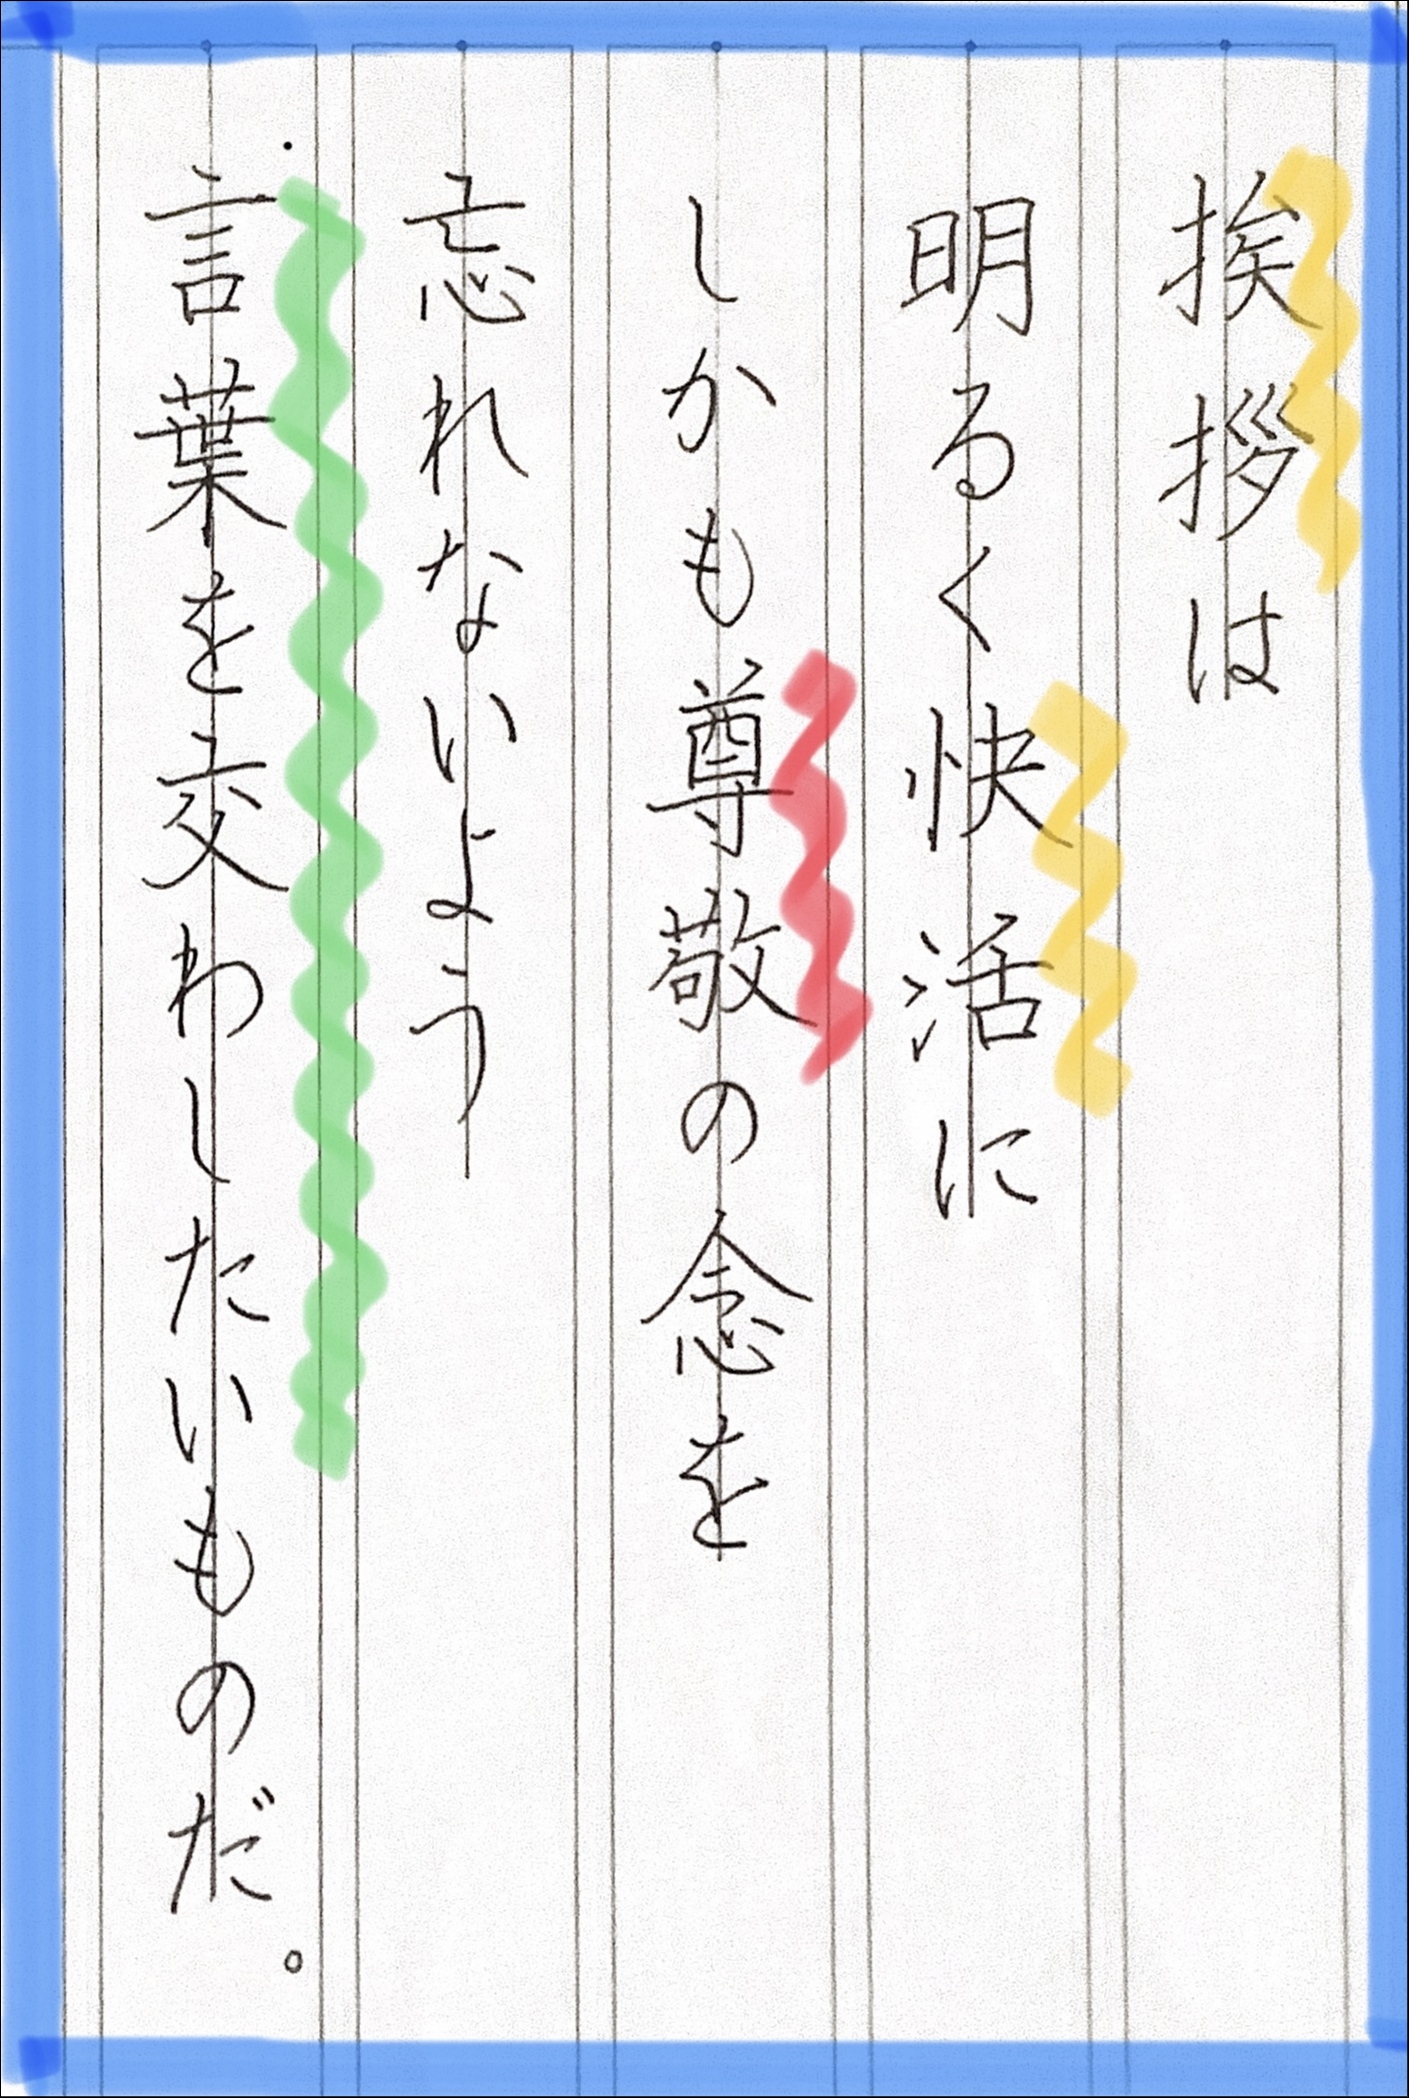 挨拶は
明るく快活に
しかも尊敬の念を
忘れないよう
言葉を交わしたいものだ。